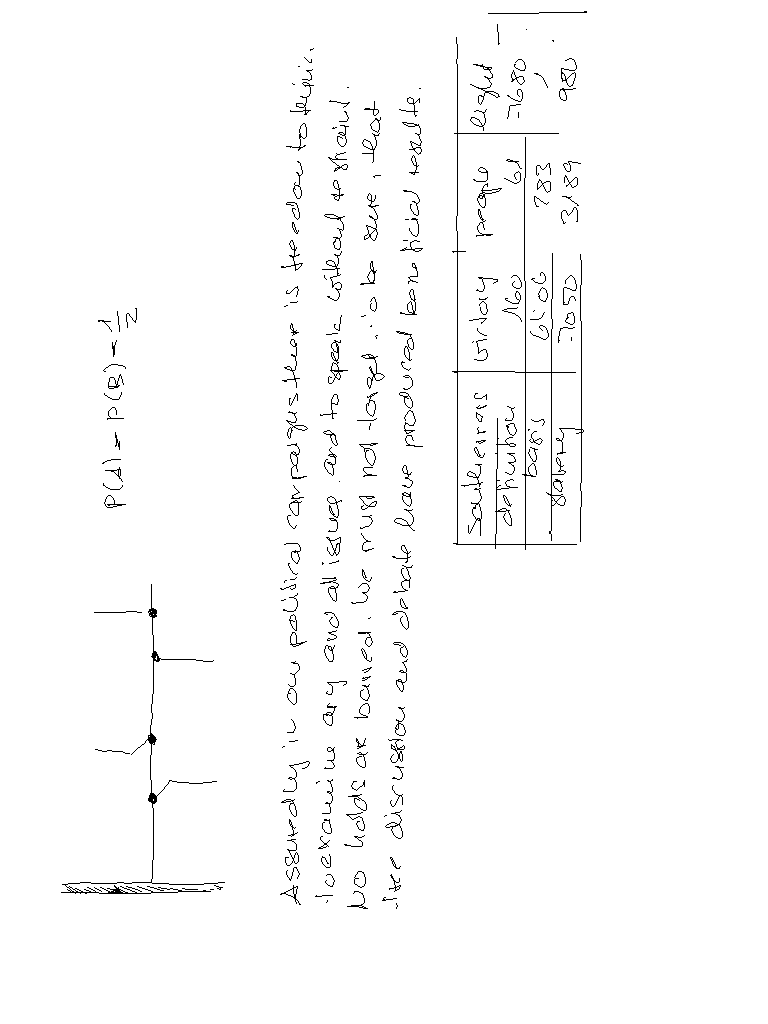 P(A) = P(B) = 1/2
Assuredly in our political campaigns there is freedom to think.
to examine any and all issues, and to speak without restraint.
No holds are barred. We must not forget, to be sure, that
free discussion and debate have produced beneficial results.
Southerners birthday people light
definition 160 61 -7680
basis 783 ,
slavery -7050 3189 980